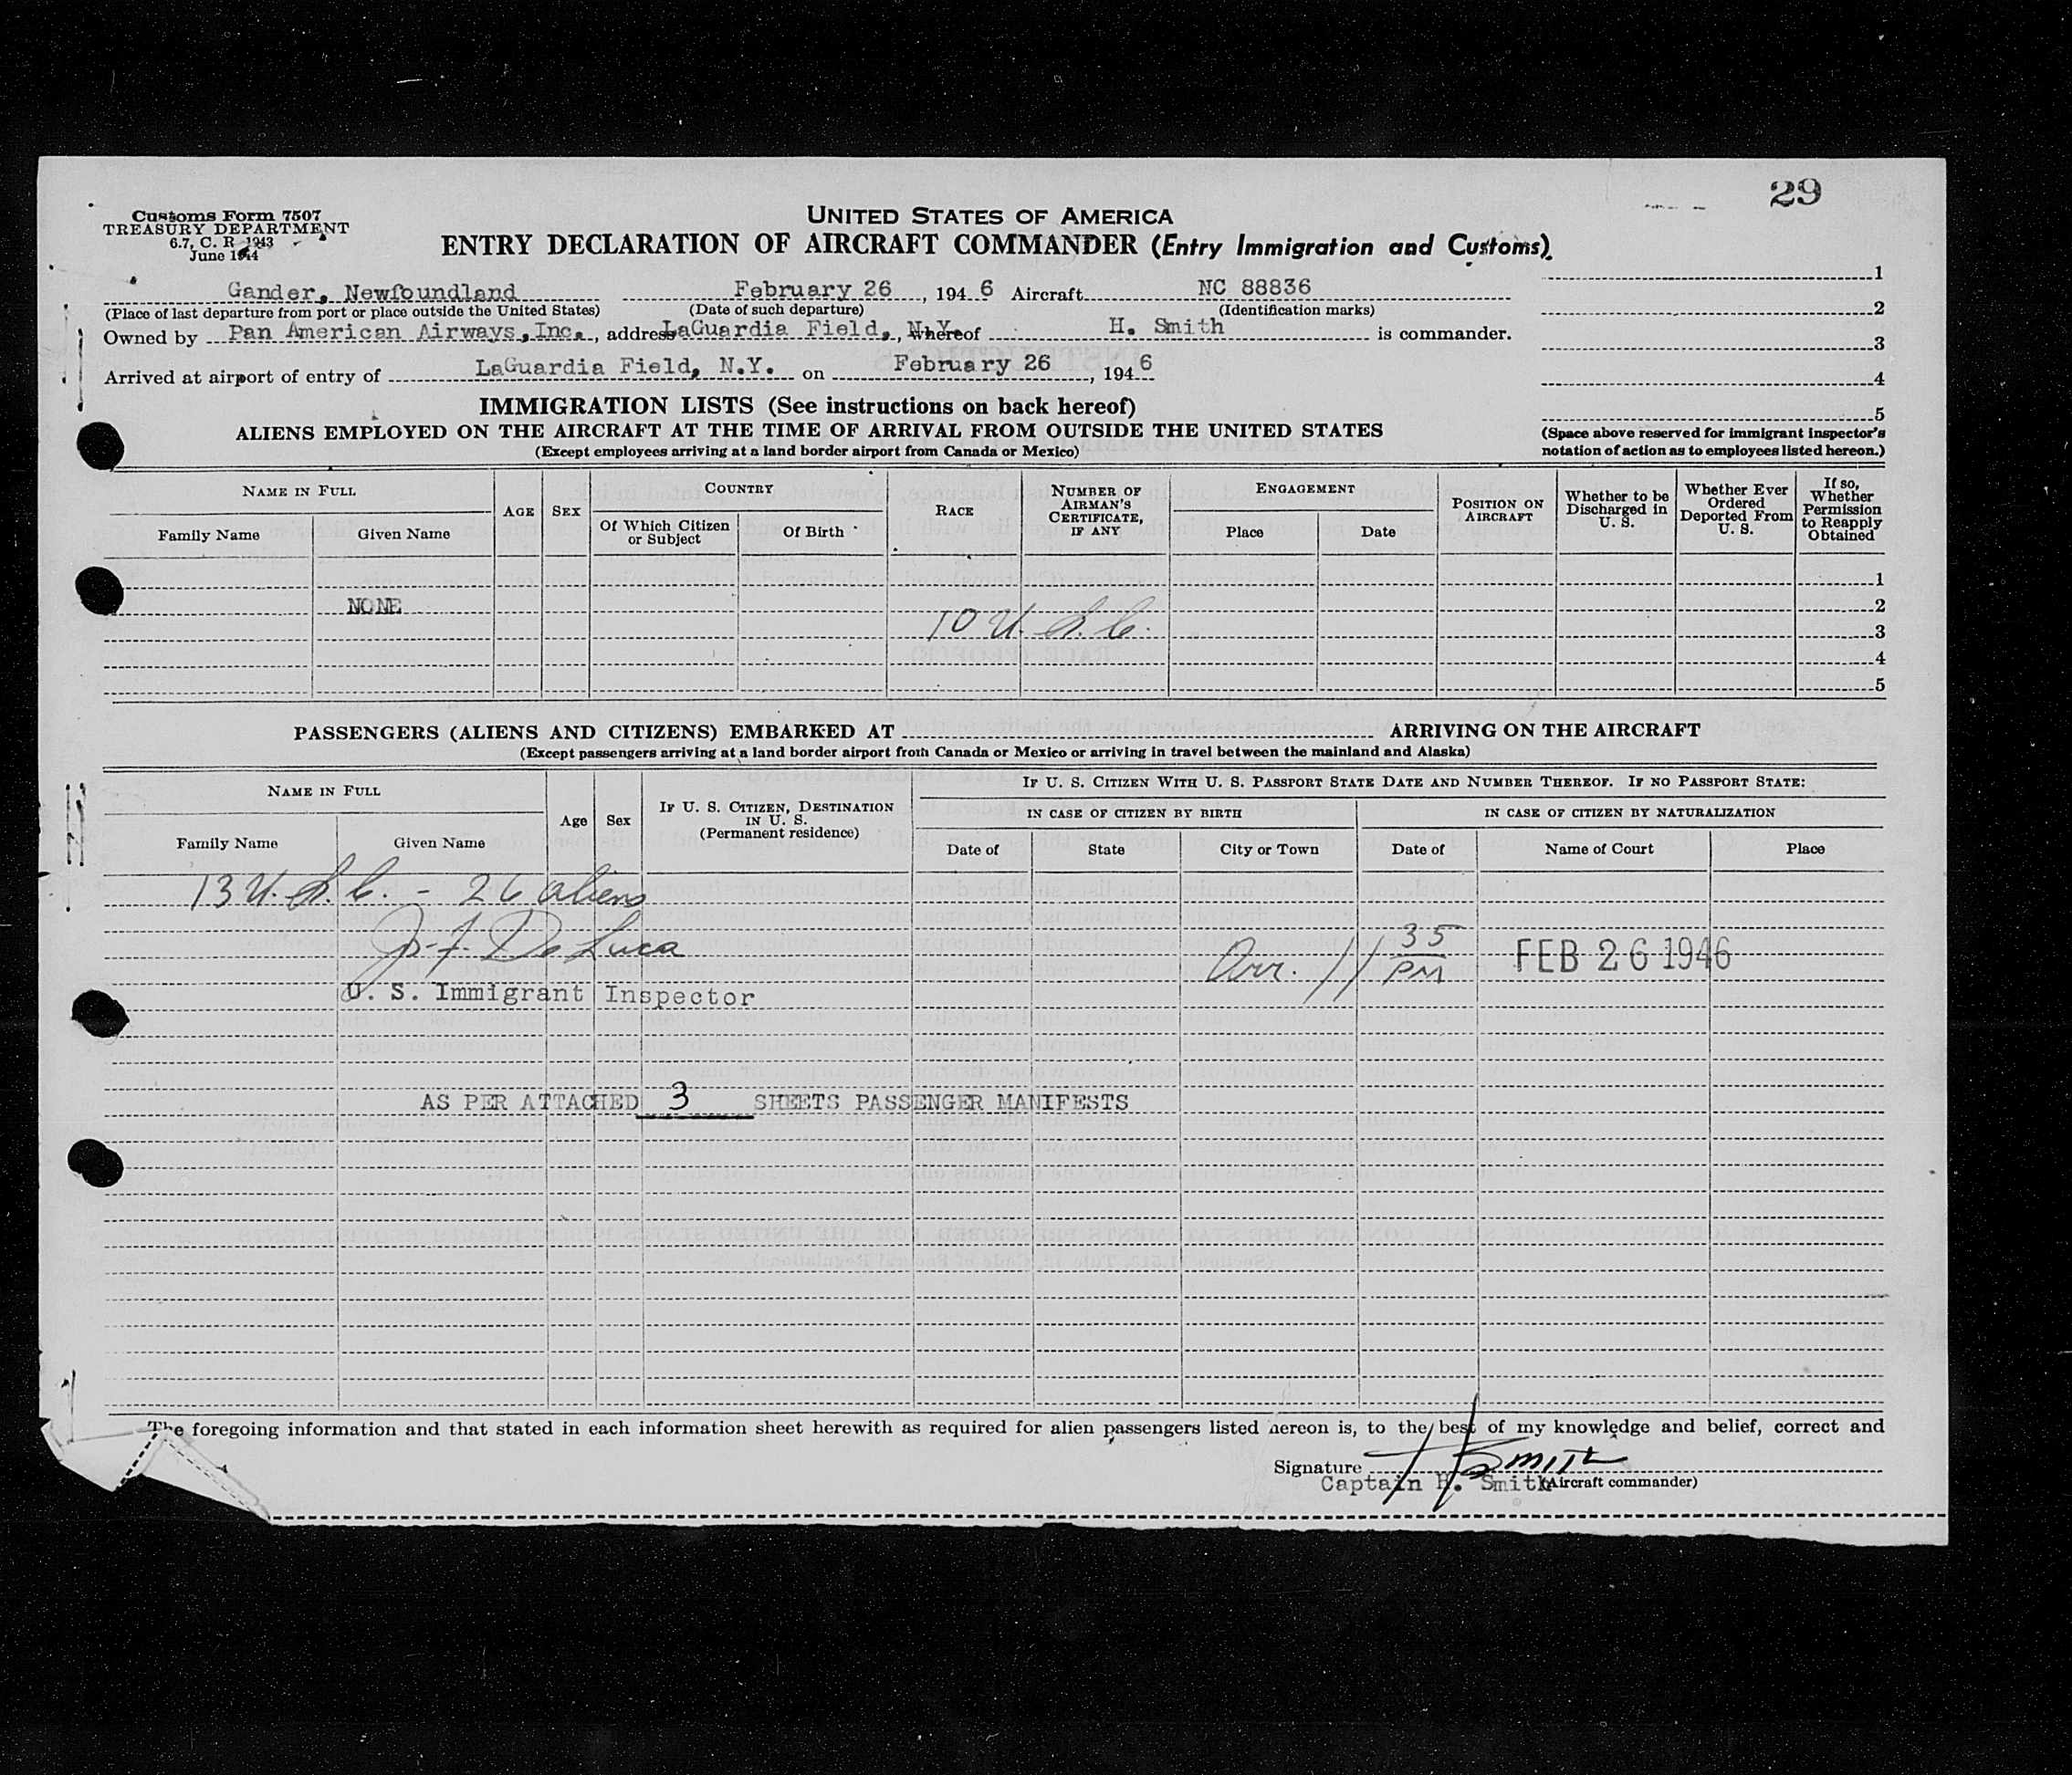 29
Customs Form 7507
TREASURY DEPARTMENT
6.7, C. R. 1943
June 1944
UNITED STATES OF AMERICA
ENTRY DECLARATION OF AIRCRAFT COMMANDER (Entry Immigration and Customs)
Gander, Newfoundland February 26, 1946 Aircraft NC 88836
(Place of last departure from port or place outside the United States) (Date of such departure) (Identification marks)
Owned by Pan American Airways, Inc., address LaGuardia Field, N.Y. whereof H. Smith is commander.
Arrived at airport of entry of LaGuardia Field, N.Y. on February 26, 1946
1
2
3
4
5
(Space above reserved for immigrant inspector's
notation of action as to employees listed hereon.)
IMMIGRATION LISTS (See instructions on back hereof)
ALIENS EMPLOYED ON THE AIRCRAFT AT THE TIME OF ARRIVAL FROM OUTSIDE THE UNITED STATES
(Except employees arriving at a land border airport from Canada or Mexico)
NAME IN FULL
Family Name Given Name
AGE SEX
COUNTRY
Of Which Citizen or Subject Of Birth
RACE
NUMBER OF AIRMAN'S CERTIFICATE, IF ANY
ENGAGEMENT
Place Date
POSITION ON AIRCRAFT
Whether to be Discharged in U. S.
Whether Ever Ordered Deported From U. S.
If so, Whether Permission to Reapply Obtained
1
NONE 2
10 U. S. C. 3
4
5
PASSENGERS (ALIENS AND CITIZENS) EMBARKED AT ARRIVING ON THE AIRCRAFT
(Except passengers arriving at a land border airport from Canada or Mexico or arriving in travel between the mainland and Alaska)
NAME IN FULL
Family Name Given Name
Age Sex
IF U. S. CITIZEN, DESTINATION IN U. S.
(Permanent residence)
IF U. S. CITIZEN WITH U. S. PASSPORT STATE DATE AND NUMBER THEREOF. IF NO PASSPORT STATE:
IN CASE OF CITIZEN BY BIRTH IN CASE OF CITIZEN BY NATURALIZATION
Date of State City or Town Date of Name of Court Place
13 U. S. C. - 26 aliens
J. F. De Luca
Arr. 11 35 PM FEB 26 1946
U. S. Immigrant Inspector
AS PER ATTACHED 3 SHEETS PASSENGER MANIFESTS
The foregoing information and that stated in each information sheet herewith as required for alien passengers listed hereon is, to the best of my knowledge and belief, correct and
Signature H Smith
Captain H. Smith (Aircraft commander)